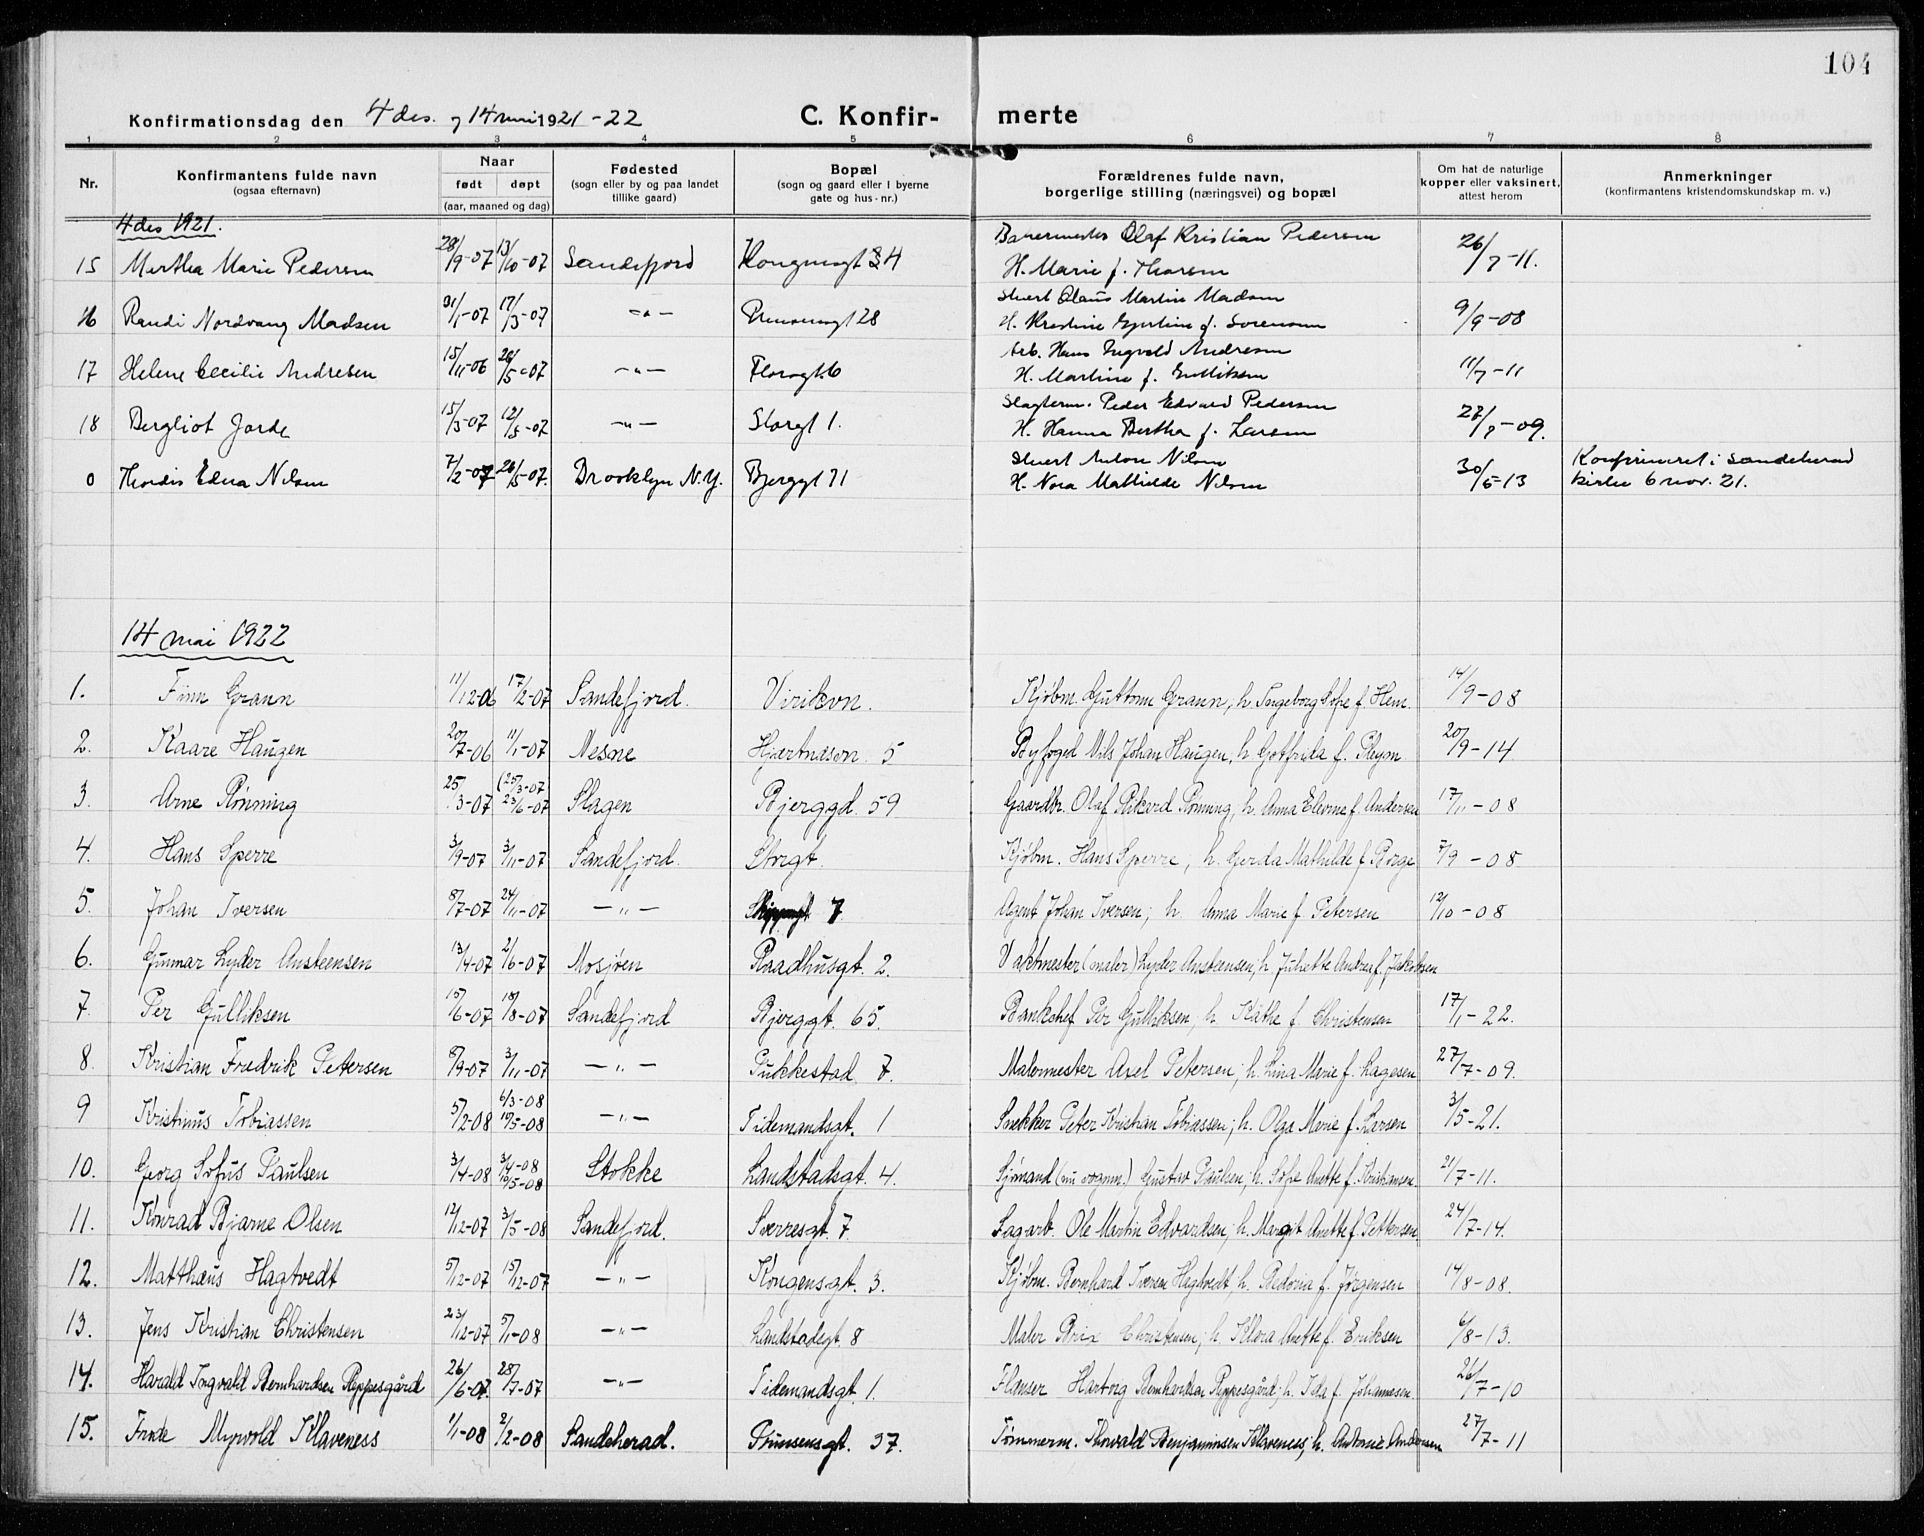 104
Konfirmationsdag den 4 des. og 14 mai 1921-22 C. Konfir- merte
1 2 3 4 5 6 7 8
Nr. Konfirmantens fulde navn (ogsaa efternavn) Naar født døpt (aar, maaned og dag) Fødested (sogn eller by og paa landet tillike gaard) Bopæl (sogn og gaard eller i byerne gate og hus-nr.) Forældrenes fulde navn, borgerlige stilling (næringsvei) og bopæl Om hat de naturlige kopper eller vaksinert, attest herom Anmerkninger (konfirmantens kristendomskundskap m. v.)
4 des 1921.
15 Mertha Marie Pedersen 28/9-07 13/10-07 Sandefjord Kongensgt 34 Olaf Kristian Pedersen H. Marie f. Thorsen 26/7-11.
16 Randi Nordvang Madsen 31/1-07 17/3-07 -"- Prinsensgt 28 Stuert Olaus Martin Madsen H. Kristine f. Sørensen 9/9-08
17 Helene Cecilie Andresen 15/11-06 26/5-07 -"- Floragt. 6 Arb. Hans Ingvald Andresen H. Martine f. Gulliksen 11/7-11
18 Bergliot Jorde 15/3-07 12/5-07 -"- Storgt 1. Slagterm. Peder Edvard Pedersen H. Hanna Bertha f. Larsen 27/7-09.
0 Thordis Edna Nilsen 7/2-07 26/5-07. Brooklyn N.Y. Bjerggt 71 Stuert Anton Nilsen H. Nora Mathilde Nilsen 30/5-13 Konfirmeret i Sandeherad kirke 6 nov. 21.
14 mai 1922
1. Finn Grann 11/12-06 17/2-07 Sandefjord. Virikvn. Kjøbm. Guttorm Grann, h. Ingeborg Sofie f. Hem. 14/9-08
2. Kaare Haugen 20/7-06 11/1-07 Nesne Hjertnæsvn. 5 Byfoged Nils Johan Haugen, h. f. 20/9-14
3. Arne Rønning 25/3-07 (25/3-07 23/6-07 Slagen Bjerggd. 59 Gaardbr. Olaf Rikard Rønning, h. Anna f. Andersen 17/11-08
4. Hans Sperre 3/9-07 3/11-07 Sandefjord. Storgt. Kjøbm. Hans Sperre, h. Gerda Mathilde f. Borge 7/9-08
5. Johan Iversen 8/7-07 24/11-07 -"- 7 Agent Johan Iversen; h. Anna Marie f. Petersen 12/10-08
6. Gunnar Lyder Austeensen 13/4-07 2/6-07 Mosjøen Raadhusgt. 2. Vaktmester (maler) Lyder Austeensen, h. Juliette Andrea f. Jakobsen
7. Per Gulliksen 15/6-07 18/8-07 Sandefjord Bjerggt. 65. Bankchef Per Gulliksen, h. Käthe f. Christensen 17/1-22.
8. Kristian Fredrik Petersen 8/9-07 3/11-07 -"- Pukkestad 7. Malermester Axel Petersen; h. Lina Marie f. Lagesen 27/7-09.
9 Kristinus Tobiassen 5/2-08 6/3-08 10/5-08 -"- Tidemandsgt. 1 Snekker Peter Kristian Tobiassen; h. Olga Marie f. Larsen 3/5-21.
10. Georg Sofus Paulsen 3/4-08 3/4-08 10/5-08 Stokke Landstadsgt. 4. Sjømand (nu vognm.) Gustav Paulsen; h. Sofie Anette f. Kristiansen. 21/7-11.
11. Konrad Bjarne Olsen 12/12-07 3/5-08 Sandefjord. Sverresgt. 7 Sagarb. Ole Martin Edvardsen; h. Margit Anette f. Pettersen. 24/7-14.
12. Matthæus Hagtvedt 5/12-07 15/12-07 -"- Kongensgt. 3. Kjøbm. Bernhard Iversen Hagtvedt, h. f. Jørgensen 14/8-08.
13. Jens Kristian Christensen 23/12-07 5/1-08 -"- Landstadsgt. 8 Maler Brix Christensen; h. Klara Anette f. Eriksen 6/8-13.
14. Harald Ingvald Bernhardsen Reppesgård 26/6-07. 28/7-07 -"- Tidemandsgt. 1. Flenser Hartvig Bernhardsen Reppesgård, h. Ida f. Johannesen. 26/7-10
15. Frode Myrvold Klaveness 1/1-08 2/2-08 Sandeherad. Prinsensgt. 37. Tømmerm. Thorvald Benjaminsen Klaveness, h. Antonie Andersen 27/7-11